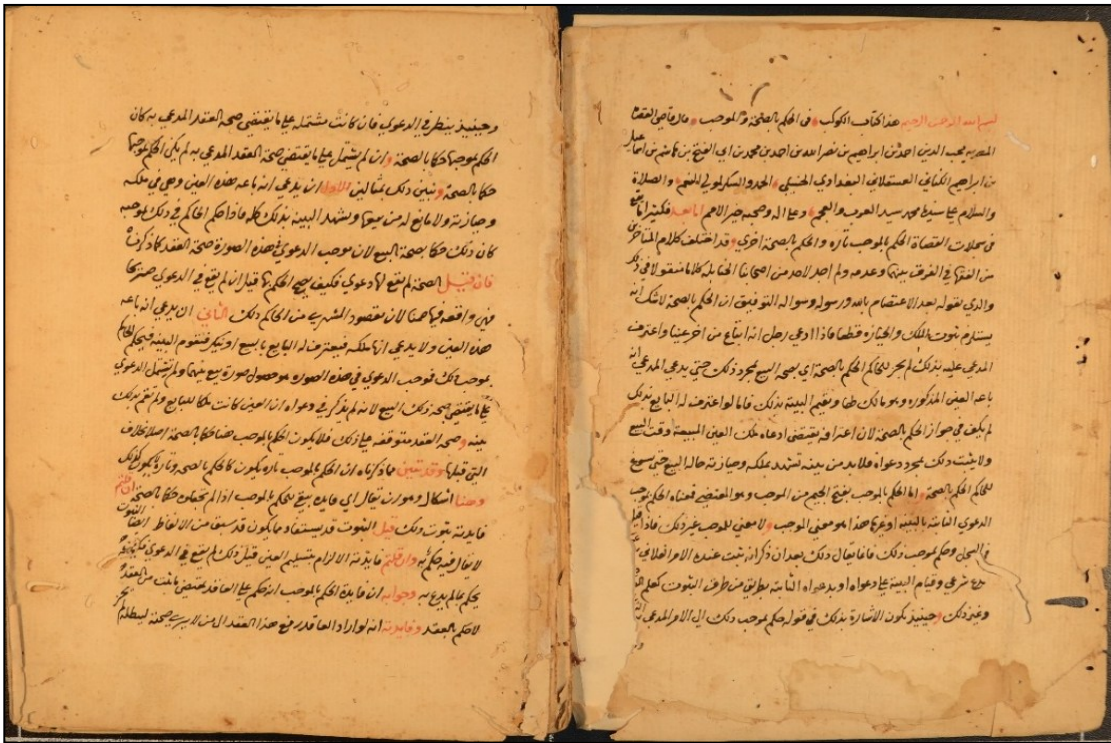 بسم الله الرحمن الرحيم هذا كتاب الكوكب في الحكم بالصحة والموجب قال قاضي القضاة
المصرية محب الدين احمد بن ابراهيم بن نصر الله بن احمد بن محمد بن ابي الفتح بن هاشم بن اسماعيل
بن ابراهيم الكناني العسقلاني البغدادي الحنبلي الحمد والشكر لولي للنعم والصلاة
والسلام على سيدنا محمد سيد العرب والعجم وعلى اله وصحبه خير الامم اما بعد فكثيرا ما يقع
في سجلات القضاة الحكم بالموجب تارة والحكم بالصحة اخرى وقد اختلف كلام المتاخرين
من الفقها في الفرق بينهما وعدمه ولم اجد لاحد من اصحابنا الحنابلة كلاما منقولا في ذلك
والذي نقوله بعد الاعتصام بالله ورسوله وسواله التوفيق ان الحكم بالصحة لا شك انه
يستلزم ثبوت الملك والحيازة قطعا فاذا ادعى رجل انه ابتاع من اخر عينا واعترف
المدعى عليه بذلك لم يجز للحاكم الحكم بالصحة اي بصحة البيع بمجرد ذلك حتى يدعي المدعي انه
باعه العين المذكورة وهو مالك لها ويقيم البينة بذلك فاما لو اعترف له البايع بذلك
لم يكف في جواز الحكم بالصحة لان اعترافه يقتضي ادعاه ملك العين المبيعة وقت البيع
ولا يثبت ذلك بمجرد دعواه فلا بد من بينة تشهد بملكه وحيازته حالة البيع حتى يسوغ
للحاكم الحكم بالصحة واما الحكم بالموجب بفتح الجيم من الموجب وهو المقتضى فمعناه الحكم بموجب
الدعوى الثابتة بالبينة او غيرها هذا هو معنى الموجب ولا معنى للموجب غير ذلك فاذا قيل
في السجل وحكم بموجب ذلك فانما يقال ذلك بعد ان ذكر انه ثبت عنده الامر الفلاني
شرعي وقيام البينة على دعواه او بدعواه الثابتة بطريق من طرق الثبوت
وغير ذلك وحينيذ تكون الاشارة بذلك في قوله حكم بموجب ذلك الى الامر المدعى
وحينيذ ينظر في الدعوى فان كانت مشتملة على ما يقتضي صحة العقد المدعى به كان
الحكم بموجبها حكما بالصحة وان لم يشتمل على ما يقتضي صحة العقد المدعى به لم يكن الحكم بموجبها
حكما بالصحة ونبين ذلك بمثالين الاول ان يدعي انه باعه هذه العين وهي في ملكه
وحيازته ولا مانع له من بيعها وتشهد البينة بذلك كله فاذا حكم الحاكم في ذلك بموجبه
كان ذلك حكما بصحة البيع لان موجب الدعوى في هذه الصورة صحة العقد كما ذكرنا
فان قيل الصحة لم يقع لها دعوى فكيف يصح الحكم بها قيل ان لم يقع في الدعوى صريحا
فهي واقعة فيها ضمنا لان مقصود المشتري من الحاكم ذلك الثاني ان يدعي انه باعه
هذه العين ولا يدعي انها ملكه فيعترف له البايع بالبيع او ينكر فتقوم البينة فيحكم الحاكم
بموجب ذلك فموجب الدعوى في هذه الصورة هو حصول صورة بيع بينهما ولم تشتمل الدعوى
على ما يقتضي صحة ذلك البيع لانه لم يذكر في دعواه ان العين كانت ملكا للبايع ولم تقم بذلك
بينة وصحة العقد متوقفة على ذلك فلا يكون الحكم بالموجب هنا حكما بالصحة اصلا بخلاف
التي قبلها وقد تبين مما ذكرناه ان الحكم بالموجب تارة يكون كالحكم بالصحة وتارة لا يكون كذلك
وهنا اشكال وهو ان يقال اي فايدة تبقى للحكم بالموجب اذا لم تجعلوه حكما بالصحة ان قلتم
فايدته ثبوت ذلك قيل الثبوت قد يستفاد مما يكون قد سبق من الالفاظ ايضا الثبوت
لا يقال فيه حكم به وان قلتم فايدته الالزام بتسليم العين قيل ذلك لم يقع في الدعوى فكيف
يحكم بما لم يدع به وجوابه ان فايدة الحكم بالموجب انه حكم على العاقد بمقتضى ما ثبت من العقد
لا حكم بالعقد وفايدته انه لو اراد العاقد رفع هذا العقد الى من لا يرى صحته ليبطله لم يجز